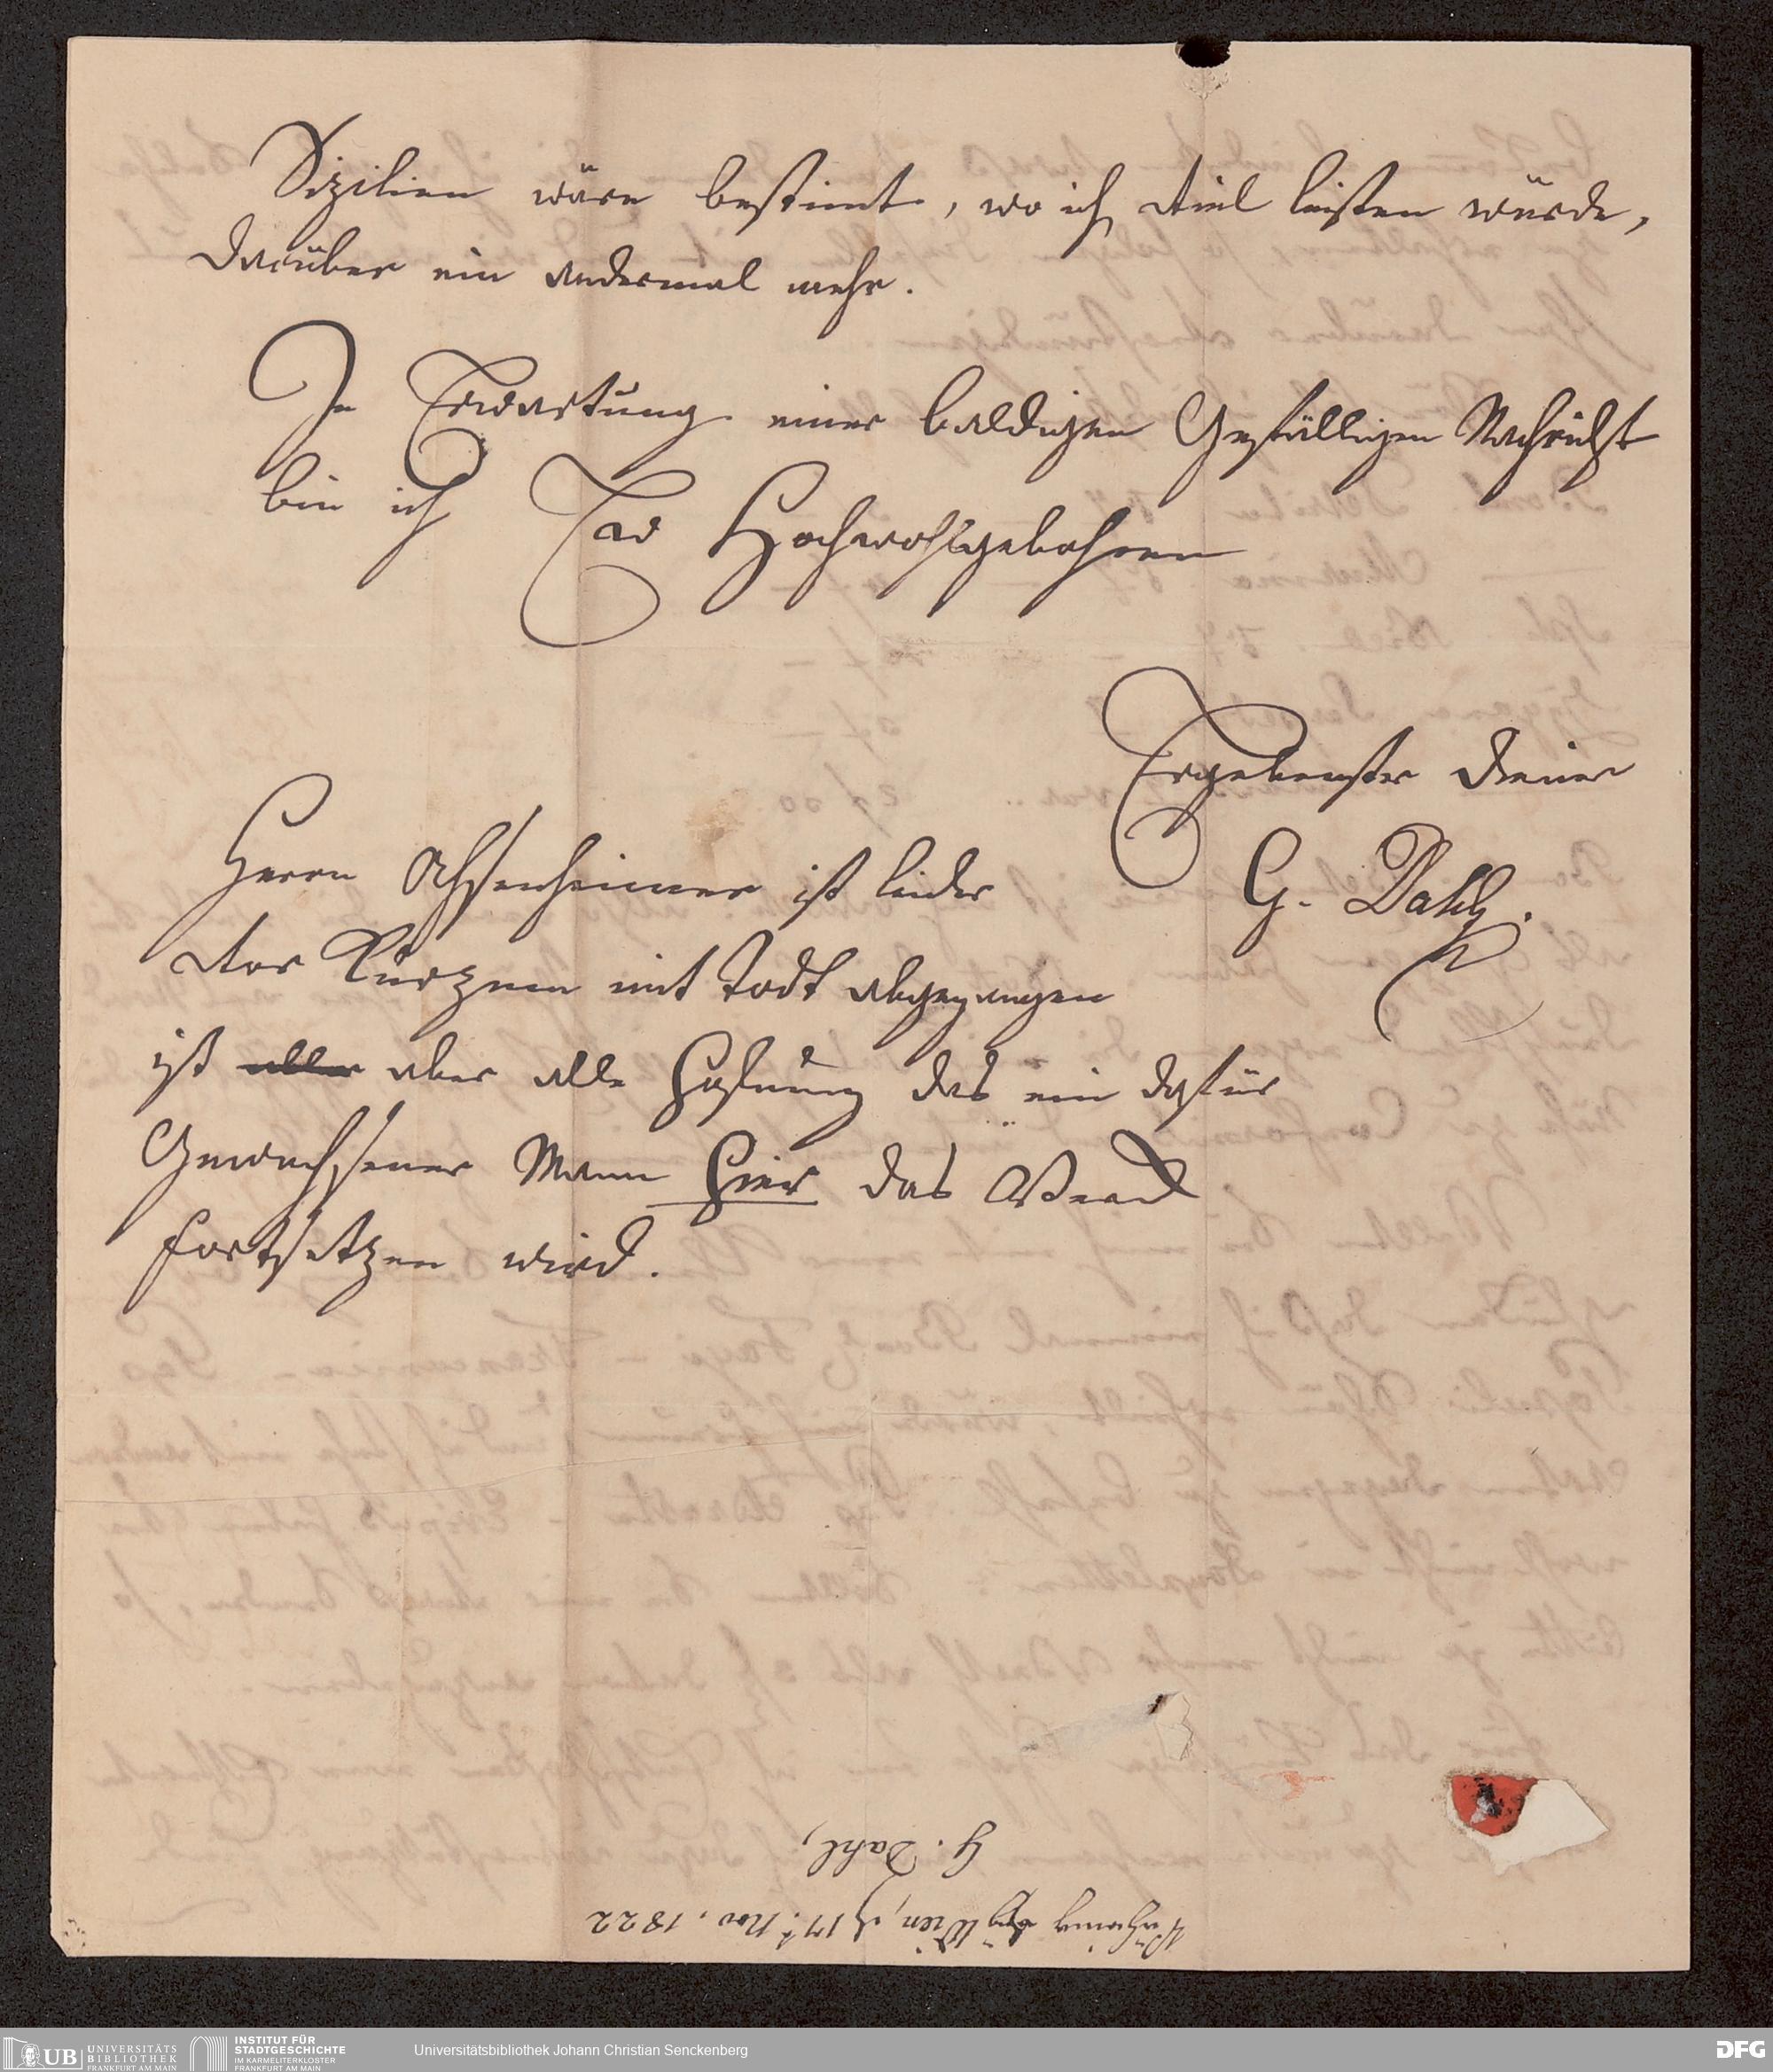 Sizilien wäre bestimt, wo ich viel leisten würde,
darüber ein andermal mehr.
In Erwartung einer baldigen Gefälligen Nachricht
bin ich Ew Hochwohlgebohren
Ergebenster Diener
G. Dahl.
Herrn Ochsenheimer ist leider
vor Kurzem mit Todt abgegangen
ist aber alle Hofnung das ein dafür
Gewachsener Mann hier das Werck
fortsetzen wird.
G. Dahl,
Währing Wien, d 17t Nov. 1822
UB UNIVERSITÄTS
BIBLIOTHEK
FRANKFURT AM MAIN
INSTITUT FÜR
STADTGESCHICHTE
IM KARMELITERKLOSTER
FRANKFURT AM MAIN
Universitätsbibliothek Johann Christian Senckenberg
DFG